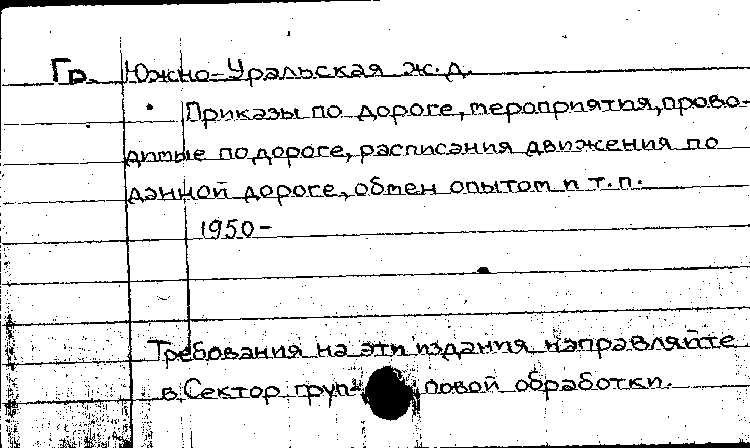 Гр. Южно-Уральская ж.д.
Приказы по дороге, мероприятия, прово-
димые по дороге, расписания движения по
данной дороге, обмен опытом и т.п.
1950-
Требования на эти издания направляйте
в Сектор груп- повой обработки.